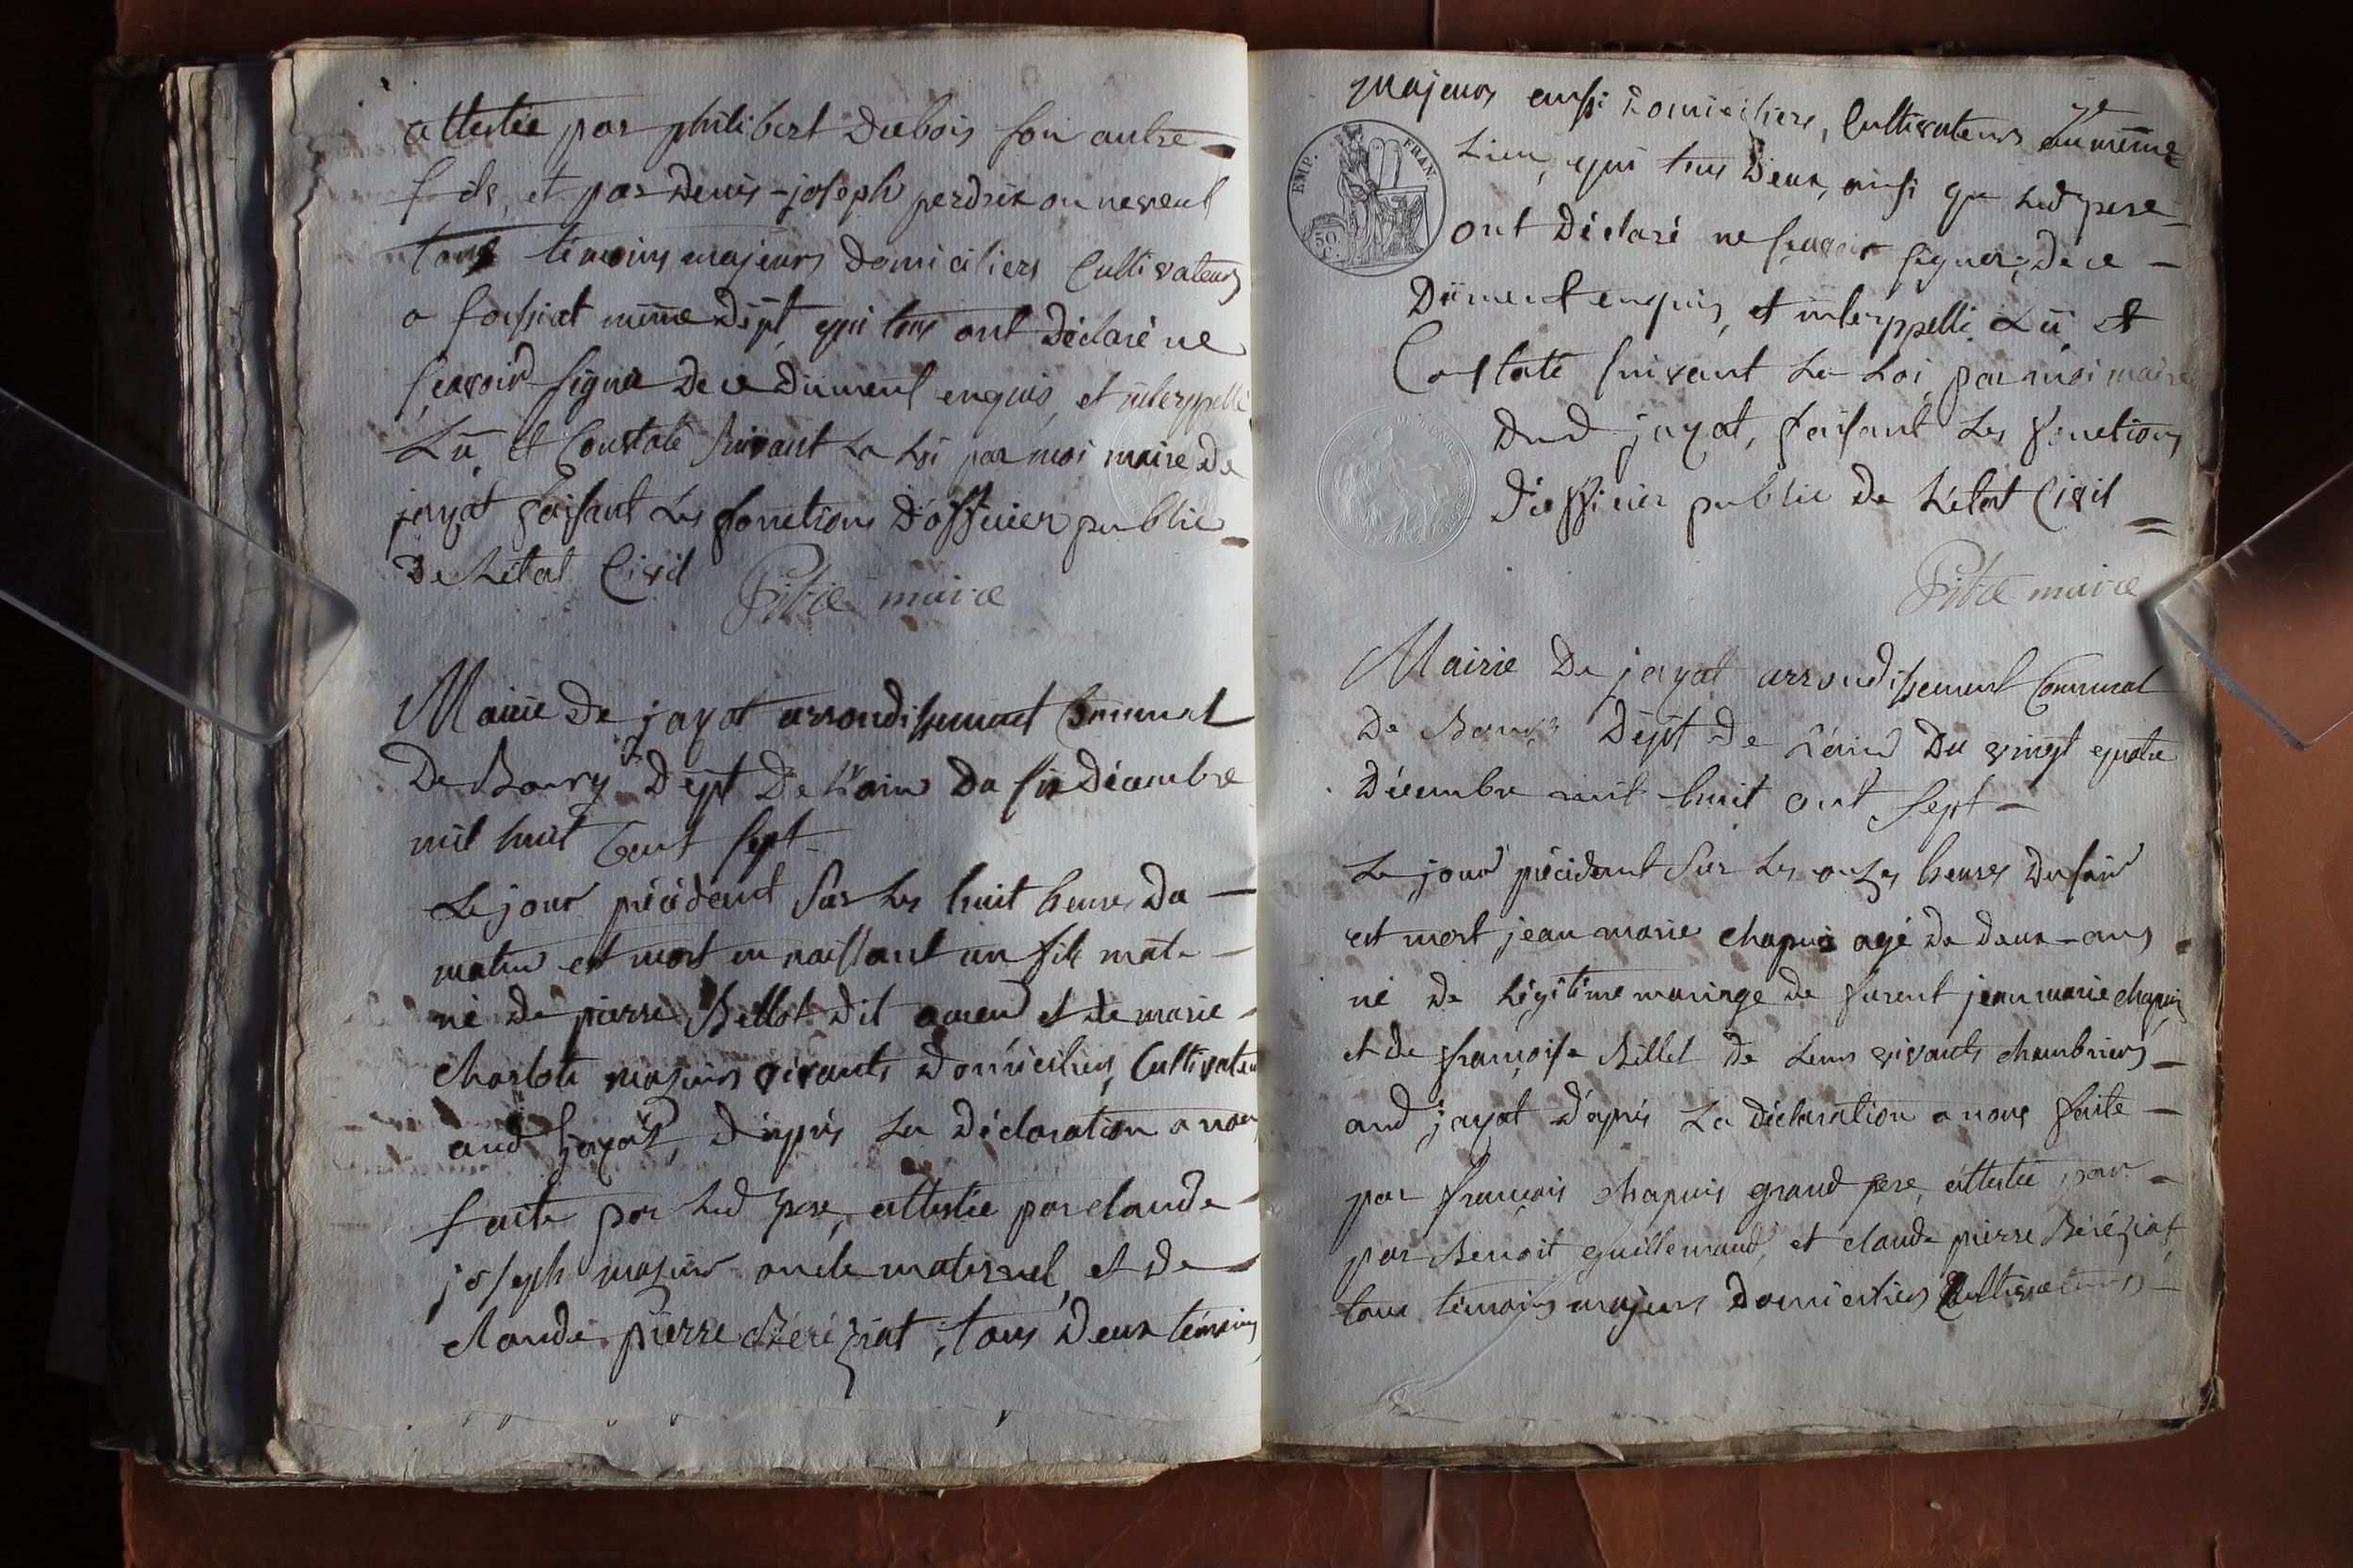 attestée par philibert Dubois son autre
fils, et par Denis-joseph perdrix ou neveul
tous témoins majeurs Domiciliers Cultivateurs
a foissiat même Dépt, qui tous ont Déclaré ne
sçavoir signer De ce Dûment enquis, et interppellé
Lû, et Constaté suivant La Loi par moi maire De
jayat faisant Les fonctions D'officier public
De L'état Civil
maire
Mairie De jayat arrondissement Communal
De Bourg Dépt De L'ain Du six Décembre
mil huit Cent sept
Le jour précédent sur Les huit heures Du
matin est mort en naissant un fils male
né De pierre Billet dit et de marie
Charlote majeurs vivants Domiciliers, Cultivateurs
aud jayat, D'après La Déclaration a nous
faite par Led pere, attestée par claude
joseph oncle maternel, et De
claude pierre Béréziat, tous Deux témoins
Majeurs aussi Domiciliers, Cultivateurs Du même
EMP. FRAN.
50 C.
Lieu, qui tous Deux, ainsi que Led pere
ont Déclaré ne sçavoir signer, De ce
Dûment enquis, et interppellé Lû, et
Costaté suivant La Loi par moi maire
Dud jayat, faisant Les fonctions
D'officier public De L'état Civil
maire
Mairie De jayat arrondissement Communal
De Bourg Dépt De L'ain Du vingt quatre
Décembre mil huit cent sept
Le jour précédent sur Les onzes heures Du soir
est mort jean marie chapuis agé De Deux ans
né De Légitime mariage De furent jean marie chapuis
et De françoise Billet De Leurs vivants chambriers
aud jayat D'après La Déclaration a nous faite
par françois chapuis grand pere, attestée par
par Benoit guillemaud, et claude pierre Béréziat
tous témoins majeurs Domiciliers Cultivateurs